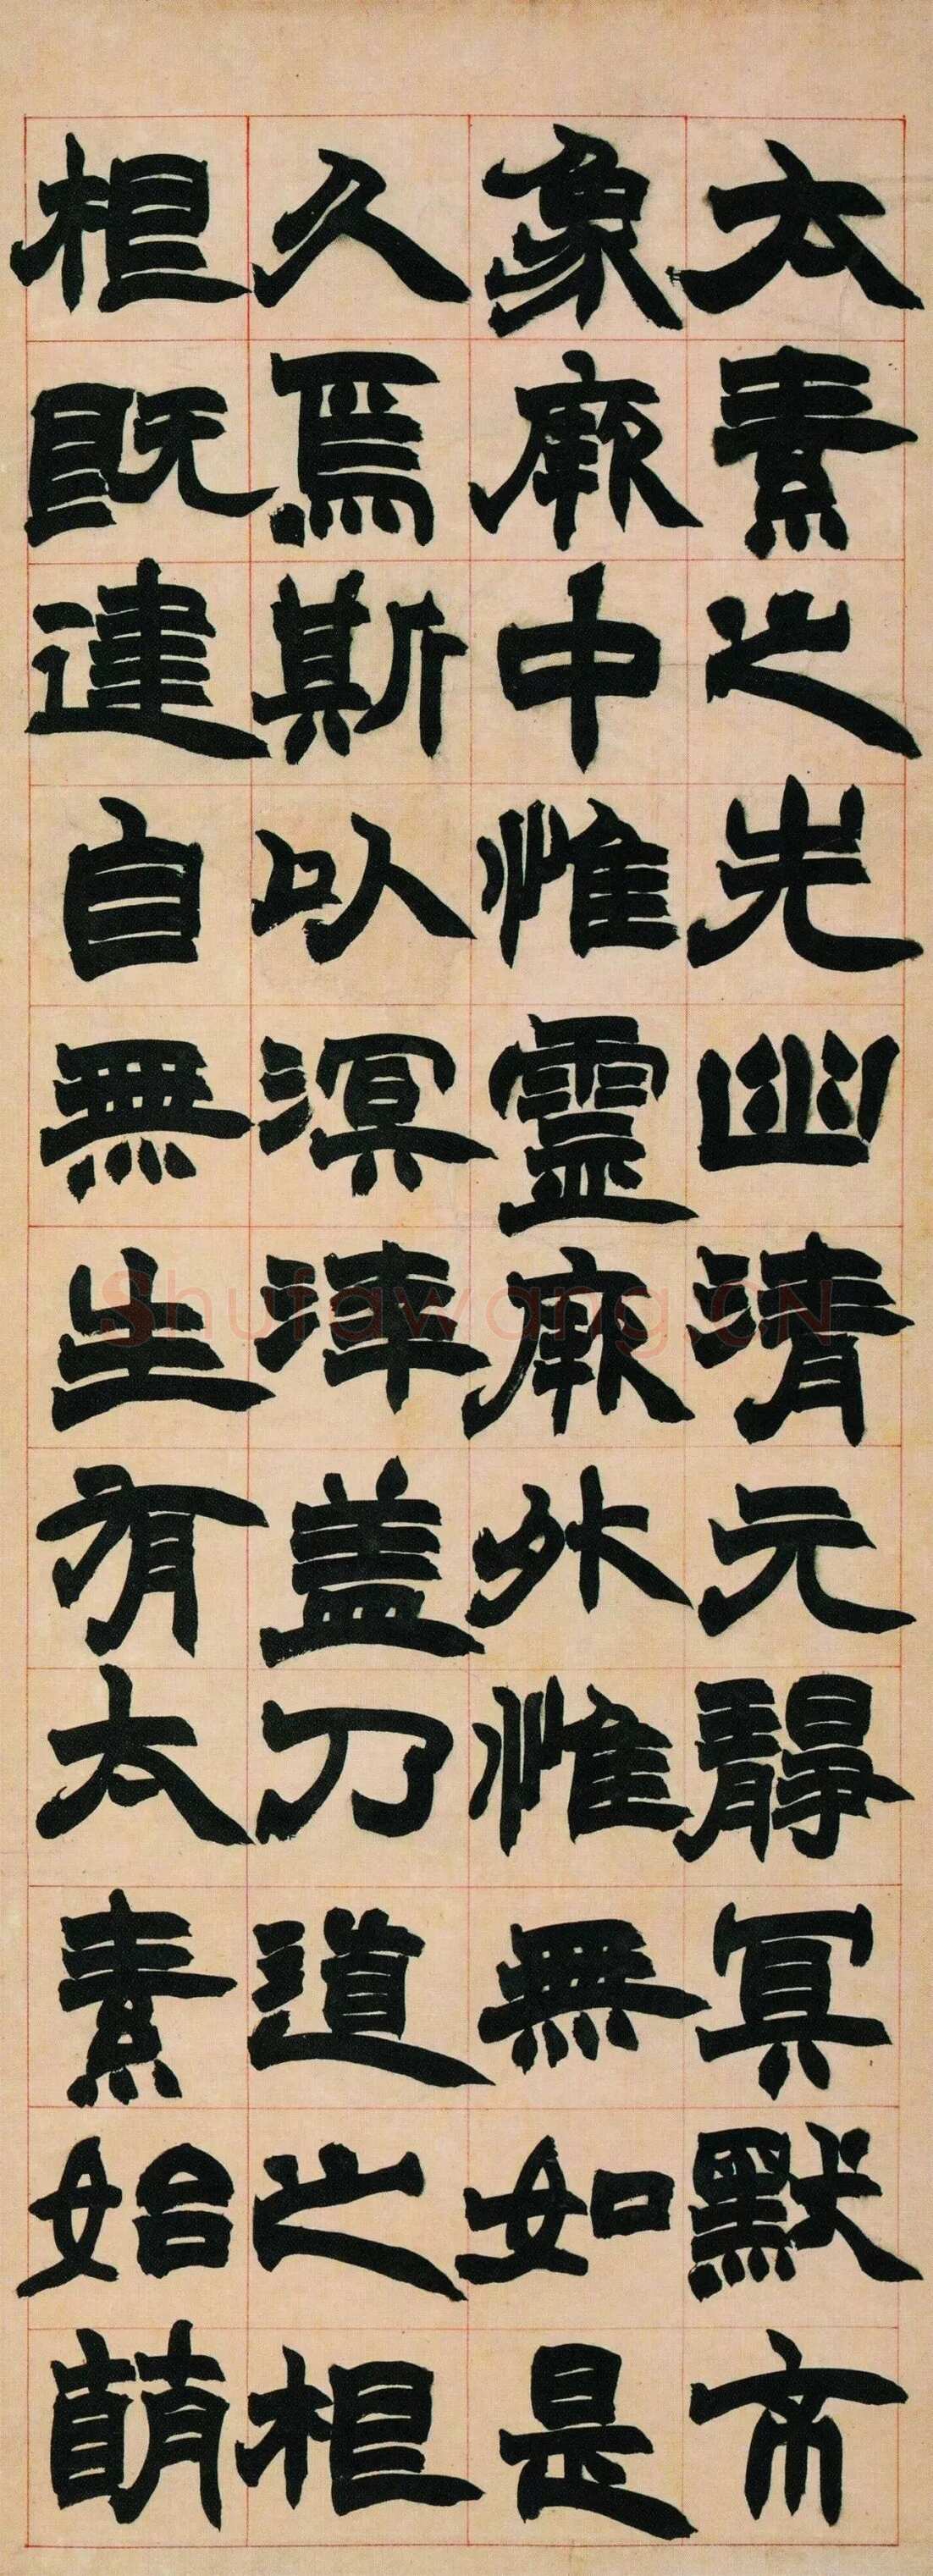 太素之先幽清元静冥默不
象厥中惟靈厥外惟無如是
久焉斯以溟涬盖乃道之根
根既建自無生有太素始萌
Shufawang.CN